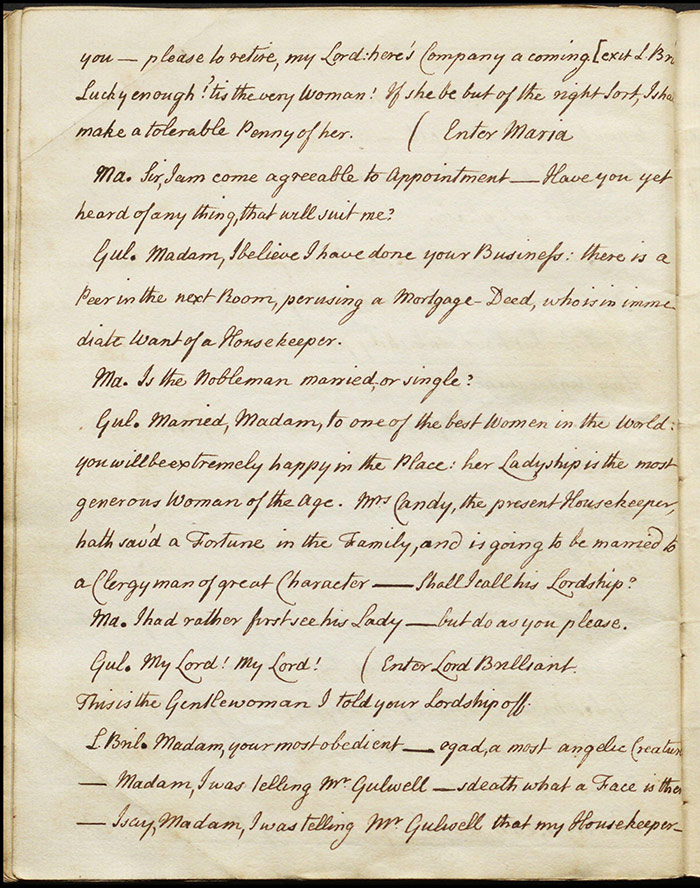 you — please to retire, my Lord: here's Company a coming. [exit L Bri
Lucky enough! 'tis the very Woman! If she be but of the right Sort, I sha
make a tolerable Penny of her. ( Enter Maria
Ma. Sir, I am come agreeable to Appointment — Have you yet
heard of any thing, that will suit me?
Gul. Madam, I believe I have done your Businefs: there is a
Peer in the next Room, perusing a Mortgage-Deed, who is in imme-
diate Want of a Housekeeper.
Ma. Is the Nobleman married, or single?
Gul. Married, Madam, to one of the best Women in the World:
you will be extremely happy in the Place: her Ladyship is the most
generous Woman of the Age. Mrs Candy, the present Housekeeper,
hath sav'd a Fortune in the Family, and is going to be married to
a Clergyman of great Character — Shall I call his Lordship?
Ma. I had rather first see his Lady — but do as you please.
Gul. My Lord! My Lord! ( Enter Lord Brilliant.
This is the Gentlewoman I told your Lordship off.
L Bril. Madam, your most obedient — egad, a most angelic Creature
— Madam, I was telling Mr Gulwell — sdeath what a Face is ther
— I say, Madam, I was telling Mr Gulwell that my Housekeeper—